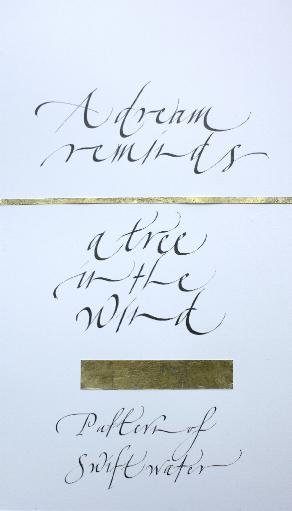 A dream
reminds
a tree
in the
Wind
Pattern of
Swift water